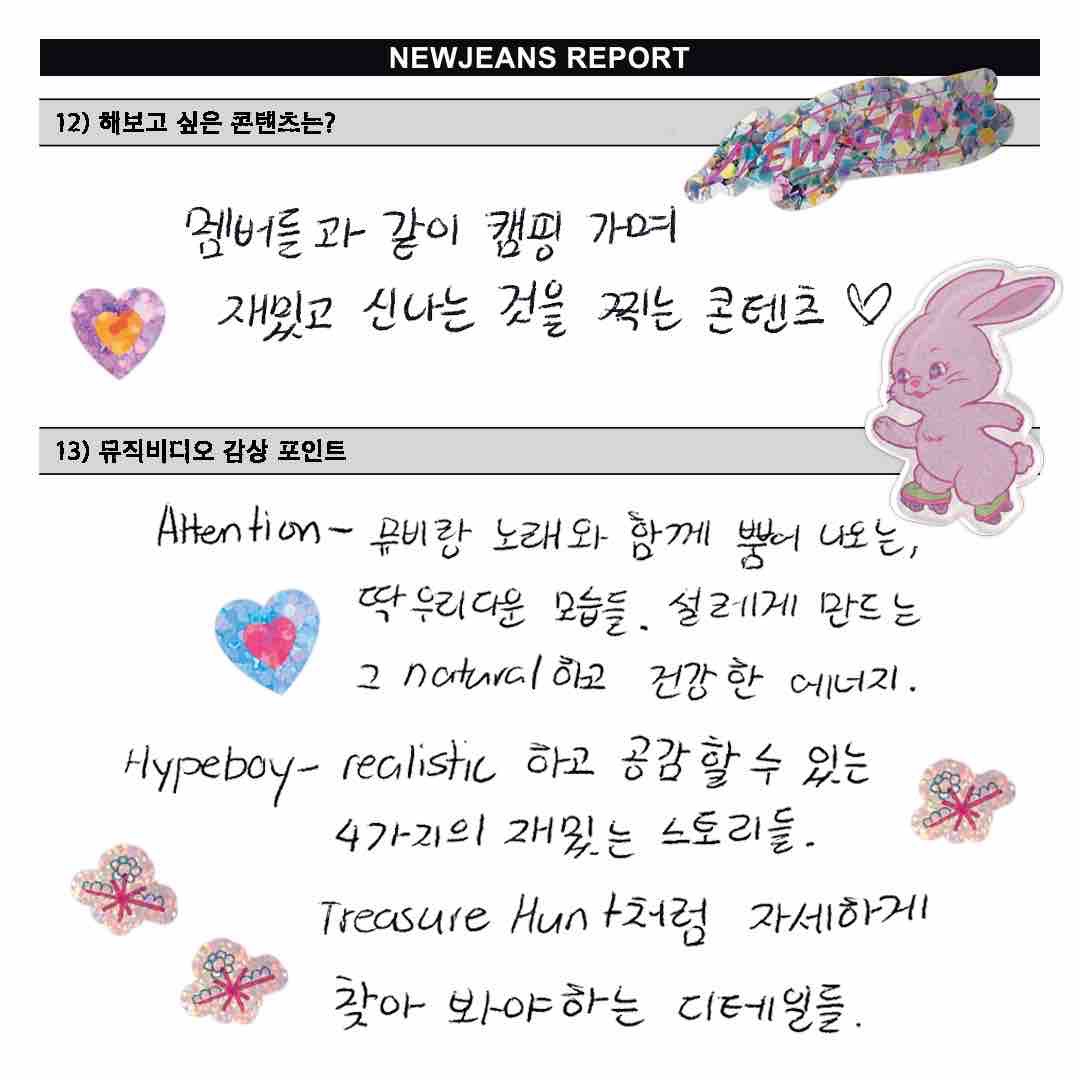 NEWJEANS REPORT
NEWJEANS
12) 해보고 싶은 콘탠츠는?
멤버들과 같이 캠핑 가며
재밌고 신나는 것을 찍는 콘텐츠 ♡
13) 뮤직비디오 감상 포인트
Attention - 뮤비랑 노래와 함께 뿜어 나오는,
딱 우리다운 모습들. 설레게 만드는
그 natural하고 건강한 에너지.
Hypeboy - realistic 하고 공감할 수 있는
4가지의 재밌는 스토리들.
Treasure Hunt처럼 자세하게
찾아 봐야하는 디테일들.